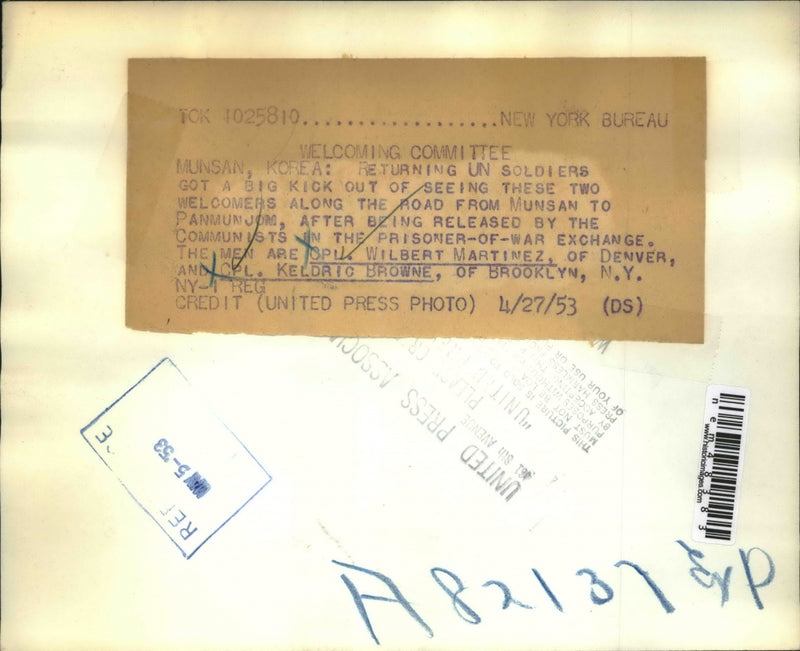 TOK 1025810...................NEW YORK BUREAU
WELCOMING COMMITTEE
MUNSAN, KOREA: RETURNING UN SOLDIERS
GOT A BIG KICK OUT OF SEEING THESE TWO
WELCOMERS ALONG THE ROAD FROM MUNSAN TO
PANMUNJOM, AFTER BEING RELEASED BY THE
COMMUNISTS IN THE PRISONER-OF-WAR EXCHANGE.
THE MEN ARE CPL. WILBERT MARTINEZ, OF DENVER,
AND CPL. KELDRIC BROWNE, OF BROOKLYN, N.Y.
NY-1 REG
CREDIT (UNITED PRESS PHOTO) 4/27/53 (DS)
UNITED PRESS ASSOCIA
461 8TH AVENUE
PLEASE CR
"UNITED PRESS
THIS PICTURE IS
MUST NOT BE
OF YOUR USE OR
REF
5-'53
CE
nem48383
www.historicimages.com
A82137